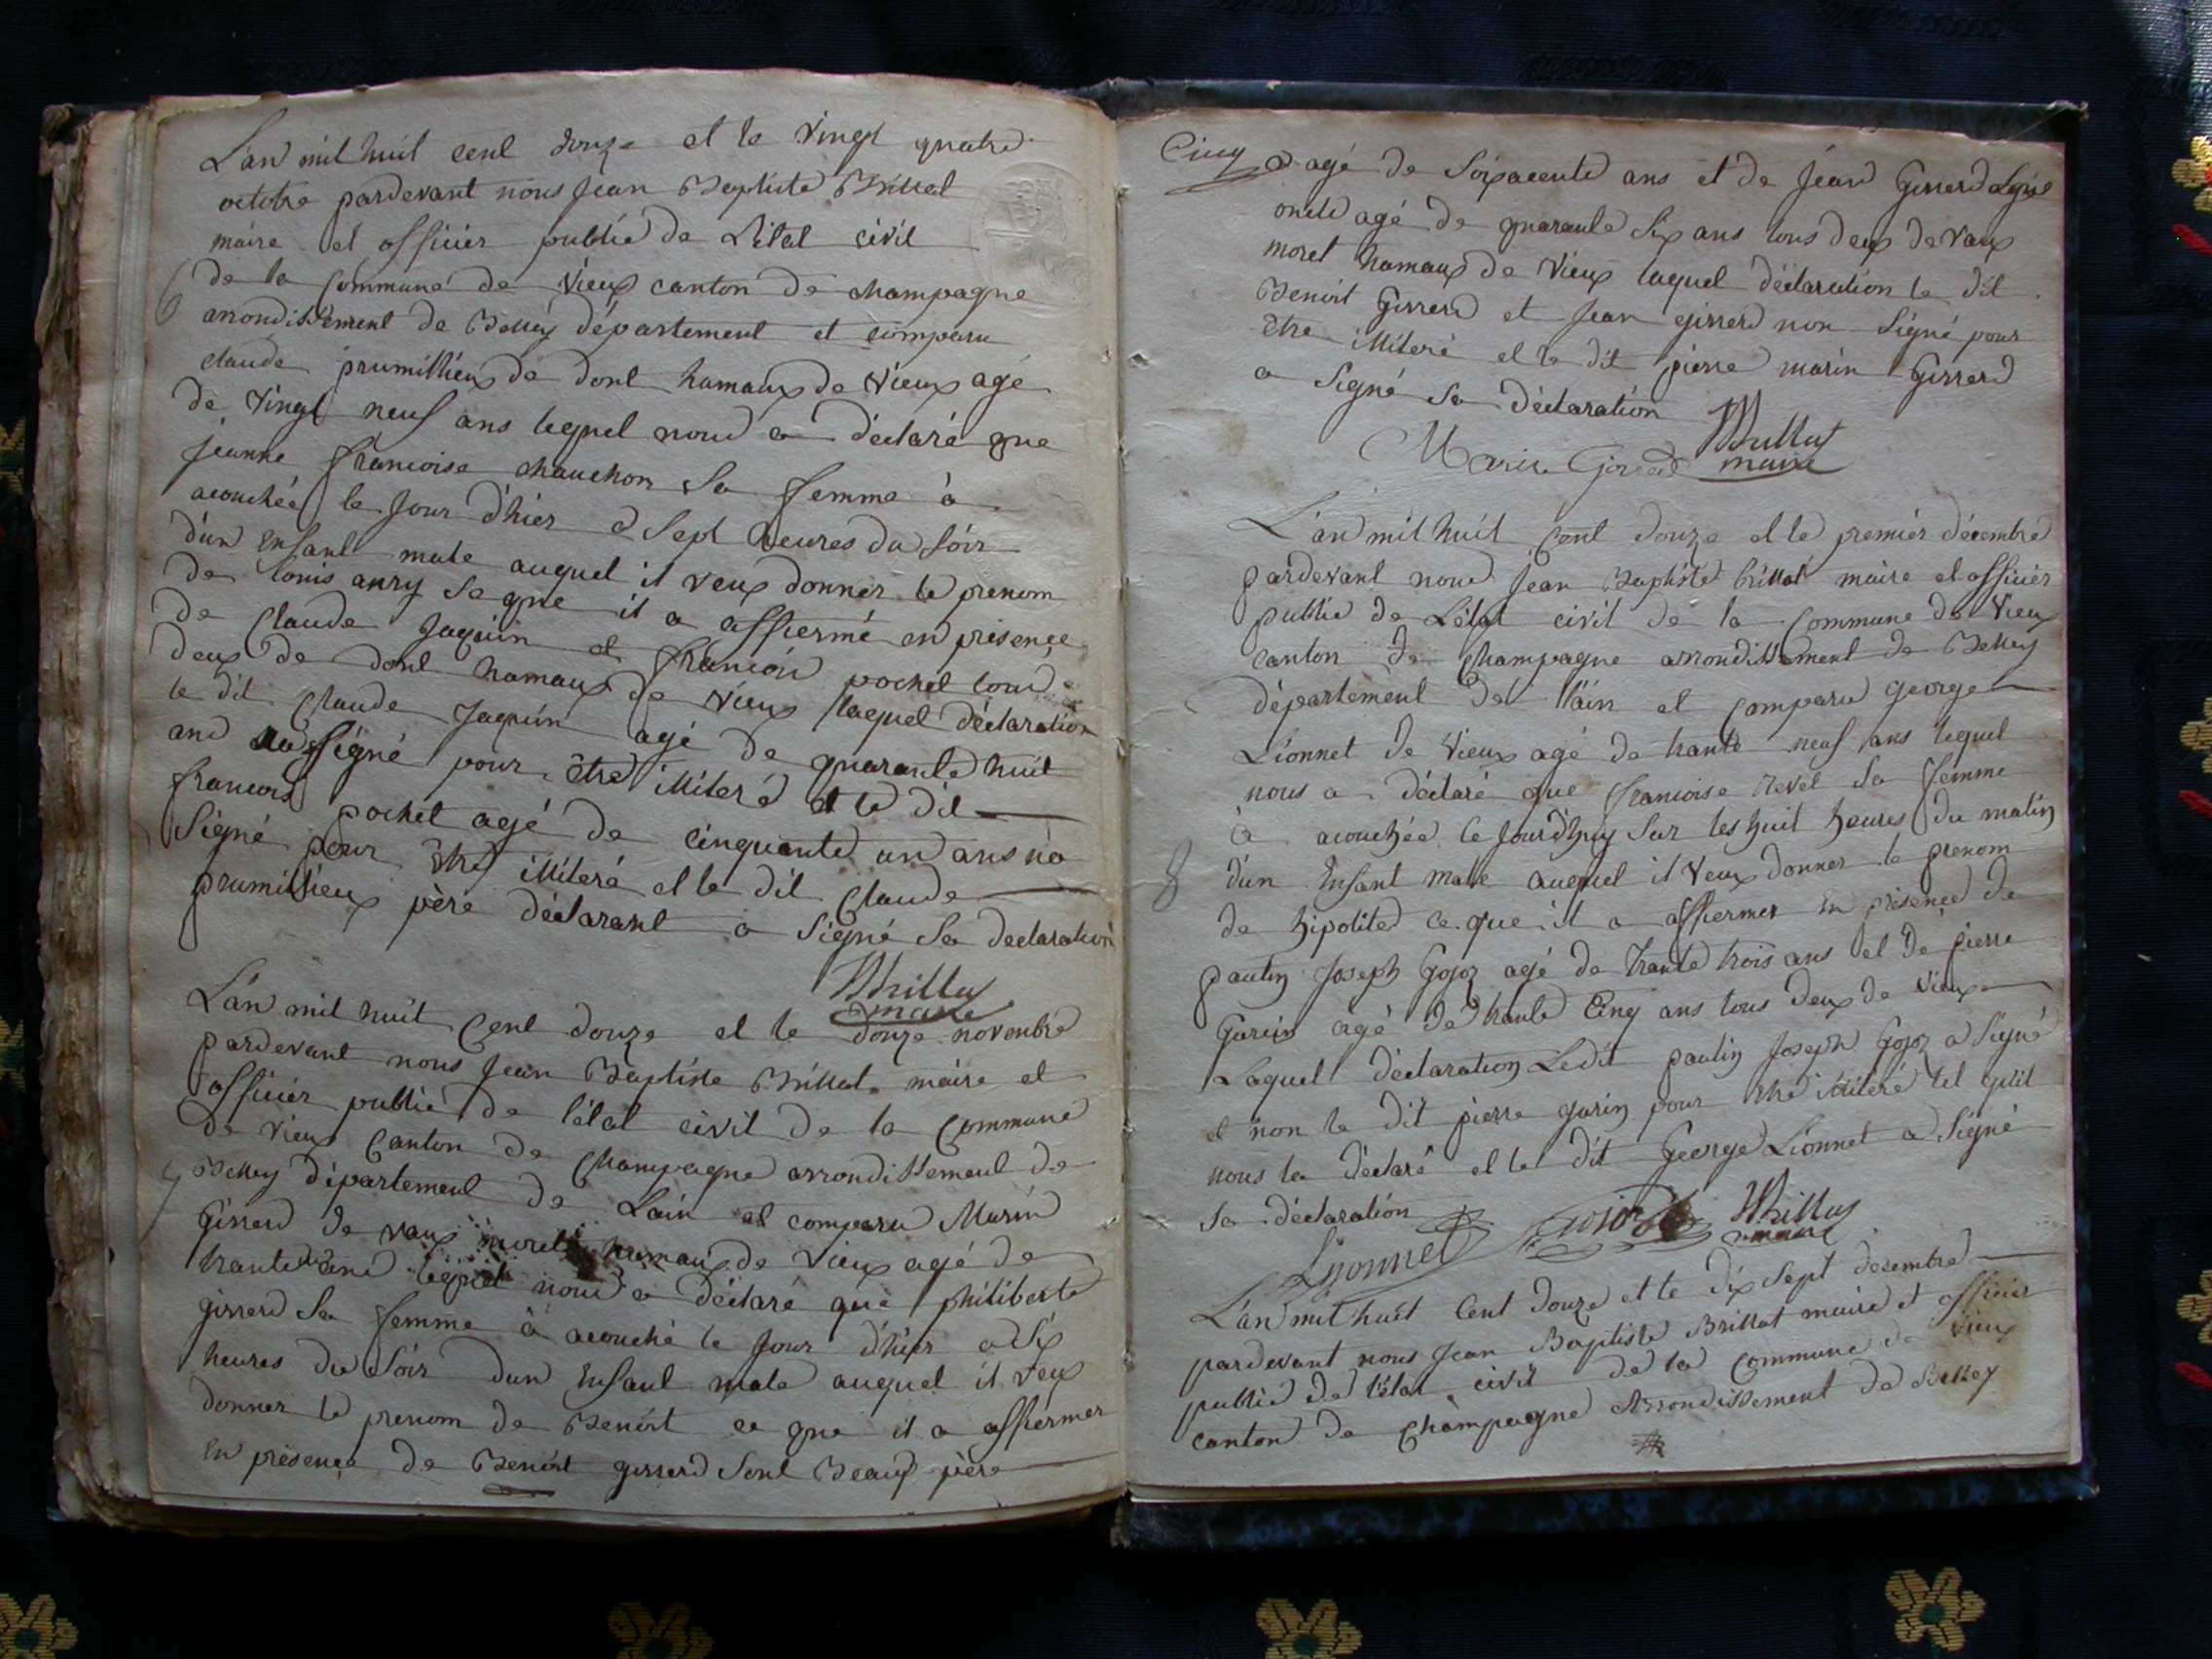 L'an mil huit cent douze et le vingt quatre
octobre pardevant nous Jean Baptiste Brillat
maire et officier public de L'état civil
6
de la Commune de Vieux canton de champagne
arrondissement de Belley département et comparu
claude prumillieux de dont hamaux de Vieux agé
de Vingt neuf ans lequel nous a déclaré que
jeanne francoise chauchon sa femme à
acouchée le Jour d'hier a Sept heures du Soir
d'un Enfant male auquel il veux donner le prenom
de Louis anry se que il a affiermé en présençe
de Claude Jaquin et francois pochet tous
deux de dont hamaux de Vieux laquel déclaration
le dit Claude Jaquin agé de quarante huit
ans Signé pour être illiteré et le dit
francois pochet agé de cinquante un ans na
Signé pour être illiteré et le dit Claude
prumillieux père déclarant a Signé Sa declaration
Brillat
maire
L'an mil huit Cent douze et le douze novenbre
pardevant nous Jean Baptiste Brillat maire et
officier public de l'état civil de la Commune
de Vieux Canton de Champagne arrondissement de
7
Belley département de Lain et comparu Marin
Girrerd de vaux moret hamaux de Vieux agé de
trante ans lequel nous a déclaré que philiberte
girrerd Sa femme à acouché le Jour d'hier a Six
heures du Soir dun Enfant male auquel il veux
donner le prenom de Benoit ce que il a affiermer
En présençe de Benoit girrerd Sont Beaux père
Cinq
agé de Soixacente ans et de Jean Girrerd
oncle agé de quarante Six ans tous deux de Vaux
moret hamaux de Vieux laquel déclaration le dit
Benoit Girrerd et Jean girrerd non Signé pour
être illiteré et le dit pierre marin Girrerd
a Signé Sa déclaration
Marin Girerd Brillat
maire
L'an mil huit Cent douze et le premiér décembre
pardevant nous Jean Baptiste brillat maire et officiér
public de L'état civil de la Commune de Vieux
canton de Champagne arrondissement de Belley
département de l'ain et comparu george
Lionnet de Vieux agé de trante neuf ans lequel
nous a déclaré que francoise revel Sa femme
à acouchée le Jourd'huy Sur les huit heures du matin
8
d'un Enfant male auquel il Veux donner le prenom
de hipolite ce que il a affiermer En présençe de
paulin Joseph Gojoz agé de trante trois ans et de pierre
Garin agé de trante Cinq ans tous deux de Vieux
Laquel déclaration Ledit paulin Joseph Gojoz a Signé
et non le dit pierre garin pour être illiteré tel qu'il
nous la déclaré et le dit George Lionnet a Signé
Sa déclaration
Lyonnet Gojoz Brillat
maire
L'an mil huit Cent douze et le dix Sept décembre
pardevant nous Jean Baptiste Brillat maire et officier
public de l'état civil de la commune de Vieux
canton de Champagne Arrondissement de Belley